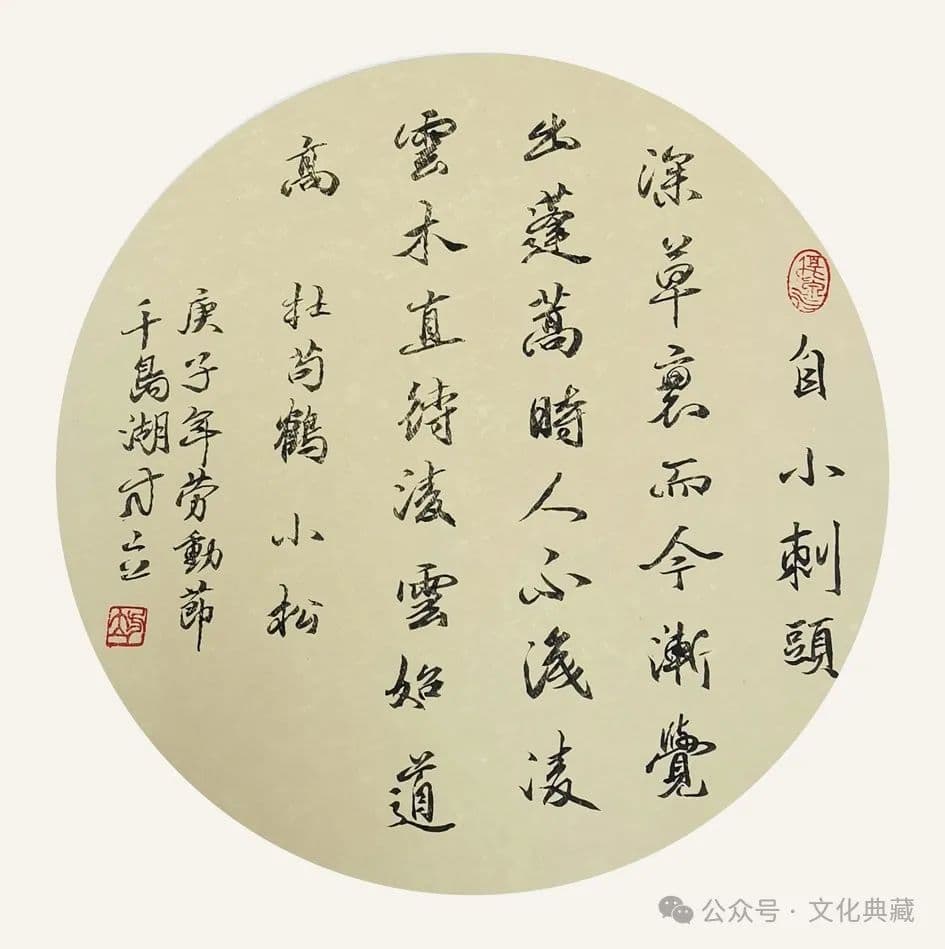 自小刺頭
深草裏而今漸覺
出蓬蒿時人不識凌
雲木直待凌雲始道
高 杜荀鶴 小松
庚子年勞動節
千島湖方立
公众号 · 文化典藏